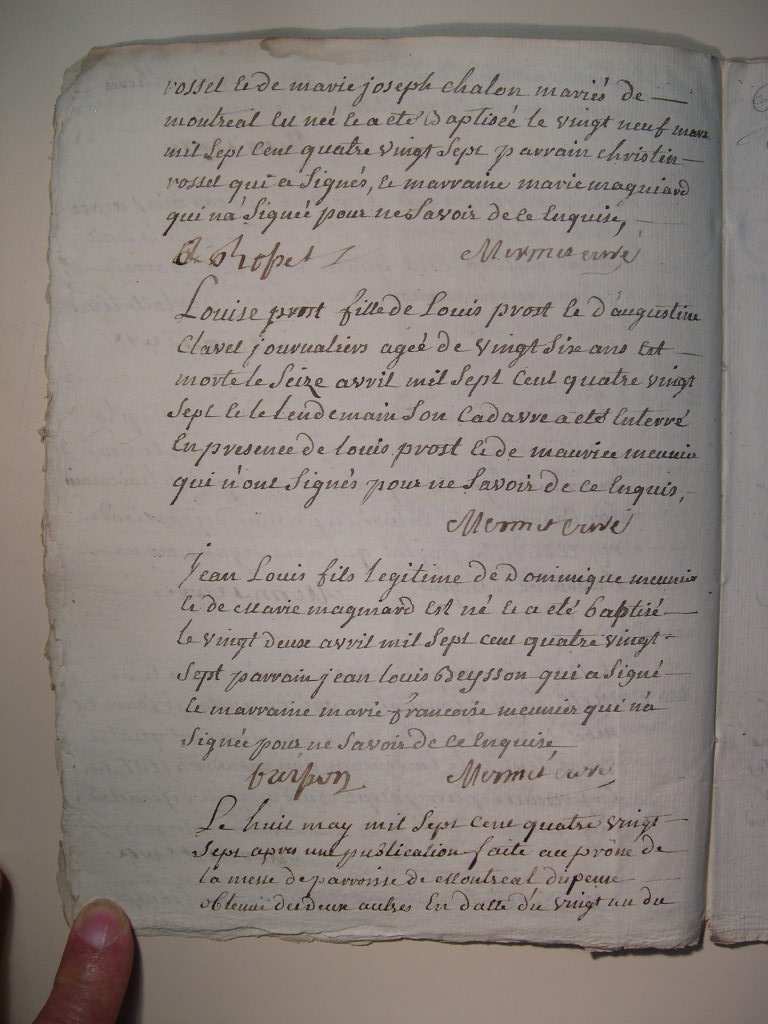 rosset et de marie joseph chalon mariés de
montreal est née et a eté Baptiseé le vingt neuf mars
mil Sept Cent quatre vingt Sept parrain christin
rosset qui a Signés, et marraine marie magniard
qui n'a Signeé pour ne Savoir de ce Enquise,
Mermet curé
Louise prost fille de Louis prost et d'augustine
Clavel journaliers ageé de vingt Six ans Est
morte le Seize avril mil Sept Cent quatre vingt
Sept et le lendemain Son Cadavre a eté Enterré
En presence de louis prost et de maurice meunier
qui n'ont Signés pour ne Savoir de ce Enquis,
Mermet curé
Jean Louis fils legitime de Dominique meunier
et de Marie magniard Est né et a eté baptisé
le vingt deux avril mil Sept Cent quatre vingt
Sept parrain jean louis Beysson qui a Signé
et marraine marie françoise meunier qui n'a
Signée pour ne Savoir de ce Enquise
Mermet curé
Le huit may mil Sept Cent quatre vingt
Sept apres une publication faite au prône de
la messe de parroisse de Montreal dispense
obtenue des deux autres En datte du vingt un du